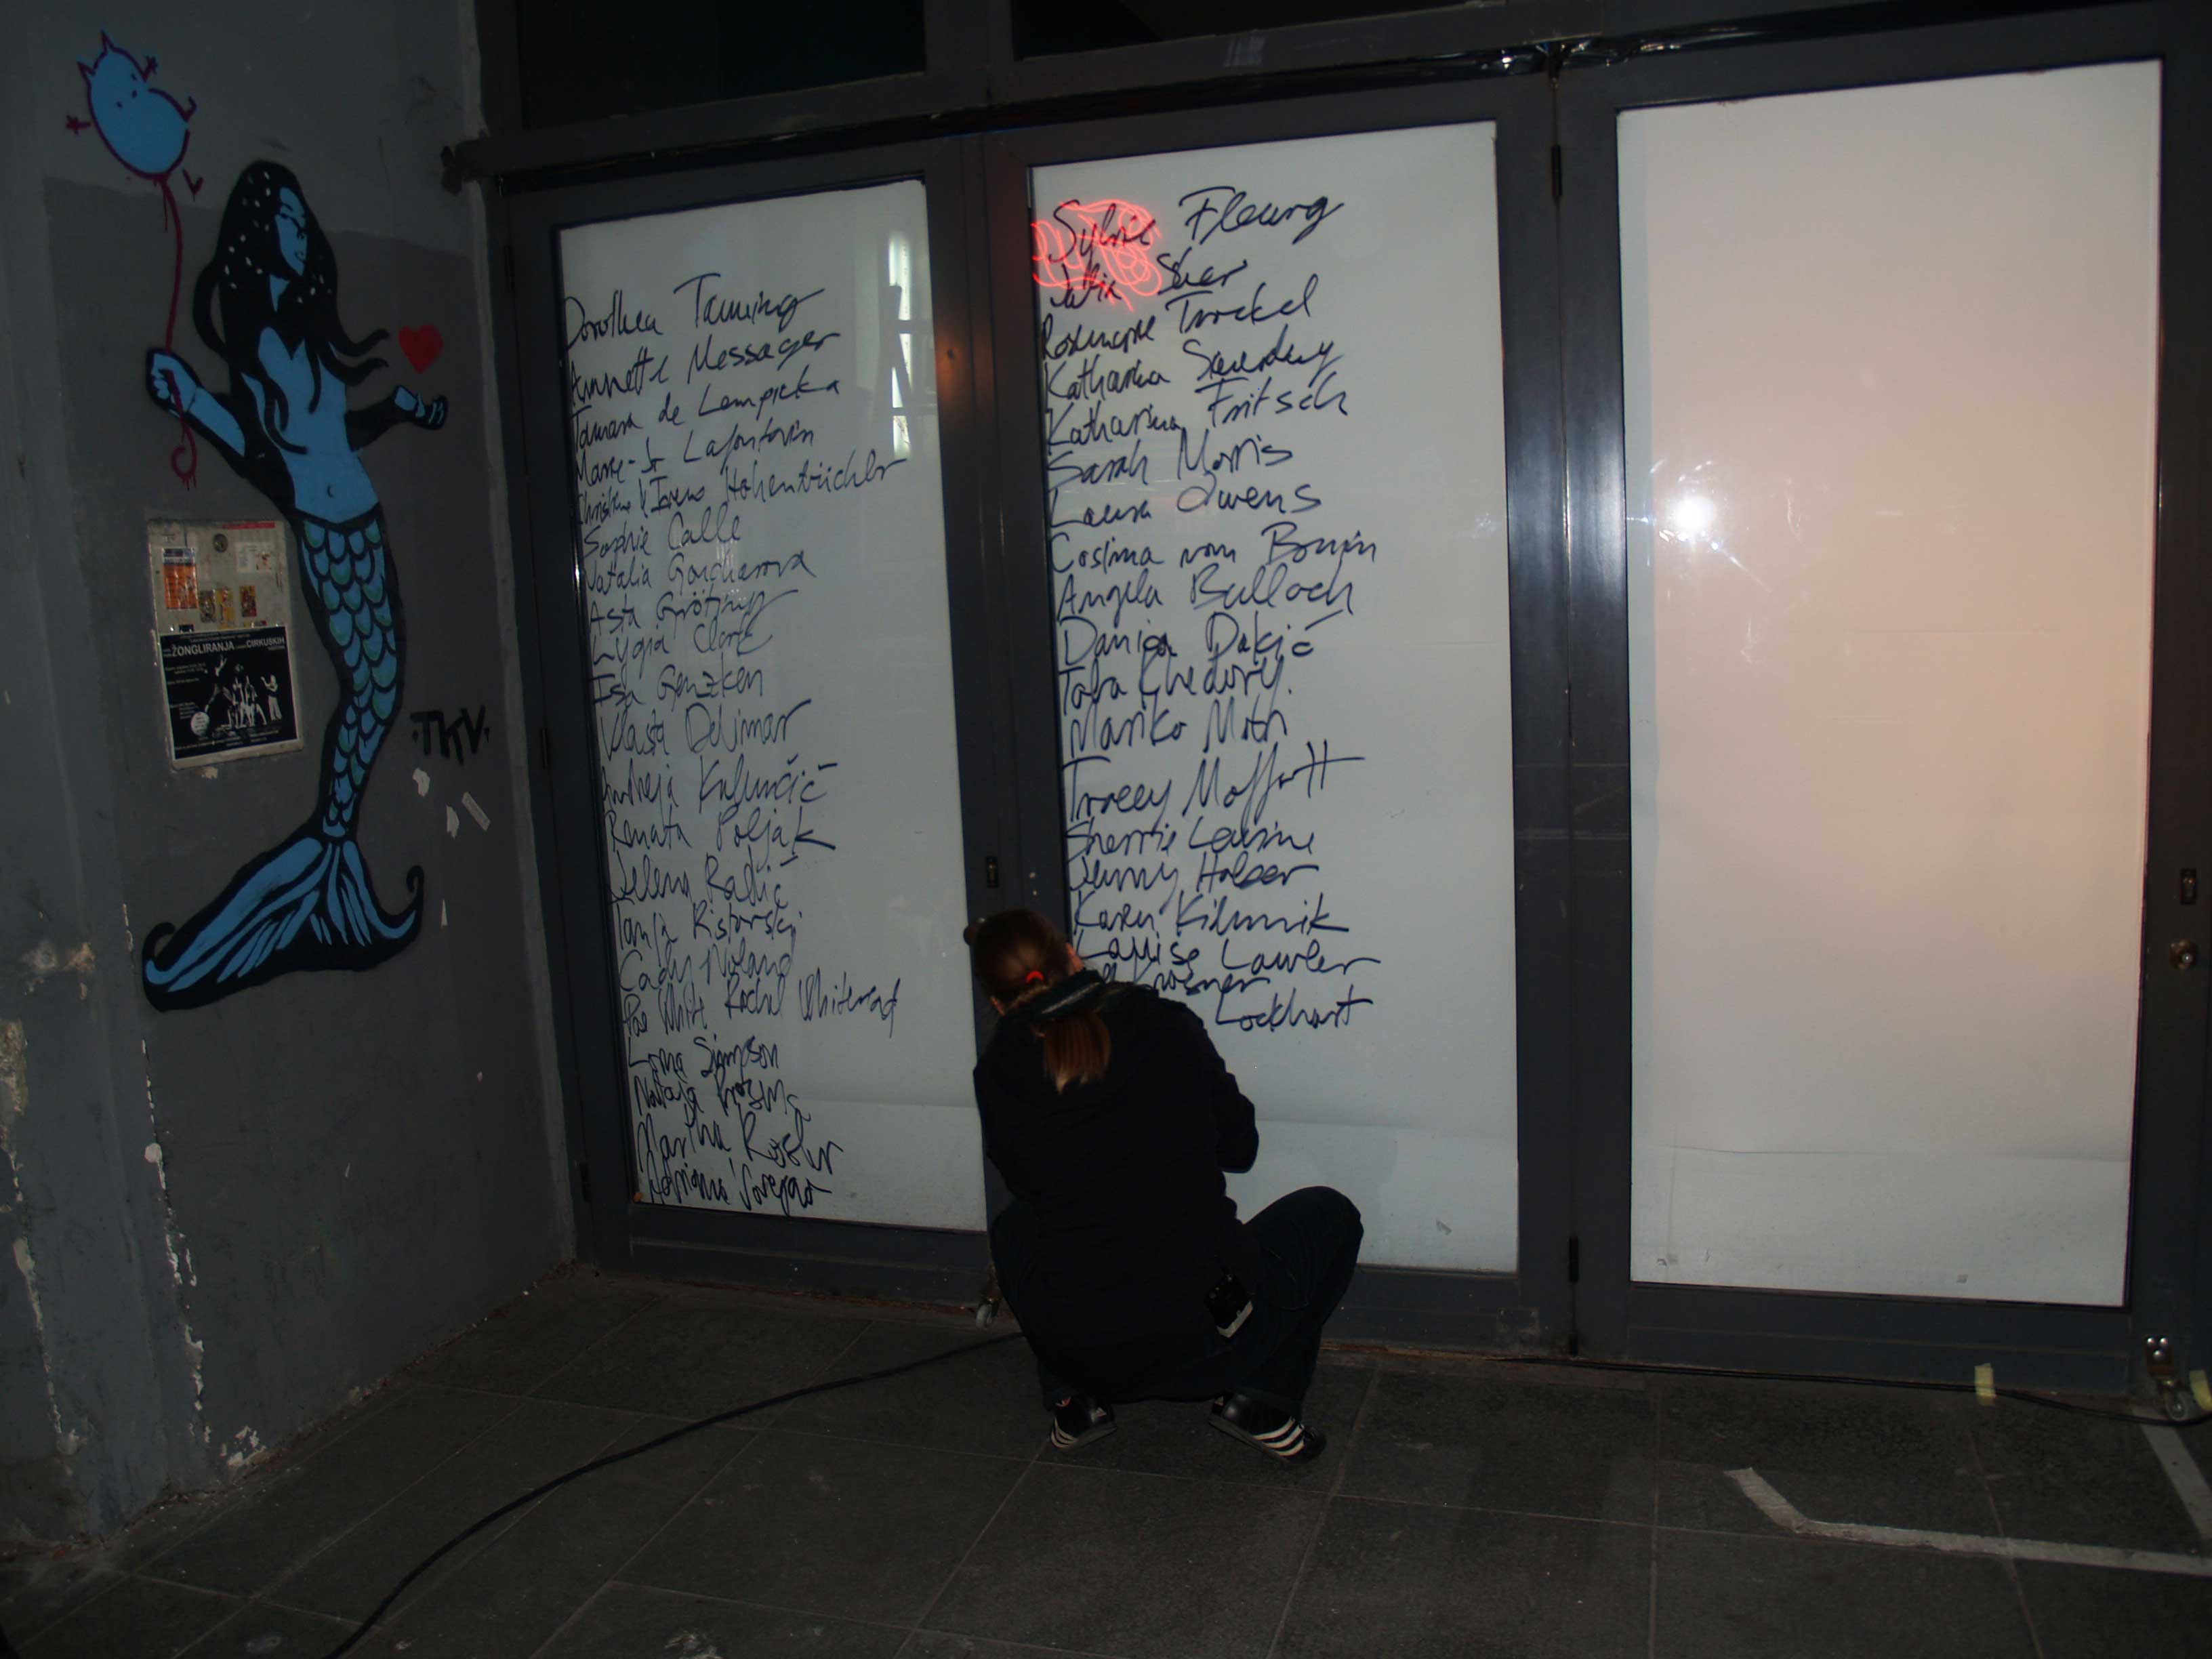 Dorothea Tanning
Annette Messager
Tamara de Lempicka
Marie-Jo Lafontain
Christine & Irene Hohenbüchler
Sophie Calle
Natalia Goncharova
Asta Gröting
Lygia Clark
Isa Genzken
Vlasta Delimar
Andreja Kulunčić
Renata Poljak
Jelena Radić
Tanja Ristovski
Cady Noland
Pae White Rachel Whiteread
Lorna Simpson
Martha Rosler
Adriana Varejao
Sylvie Fleury
Julia Scher
Rosemarie Trockel
Katharina Sieverding
Katharina Fritsch
Sarah Morris
Laura Owens
Cosima von Bonin
Angela Bulloch
Danica Dakić
Toba Khedory
Mariko Mori
Tracey Moffatt
Sherrie Levine
Jenny Holzer
Karen Kilimnik
Louise Lawler
Krasner
Lockhart
TKV
ŽONGLIRANJA CIRKUSKIH